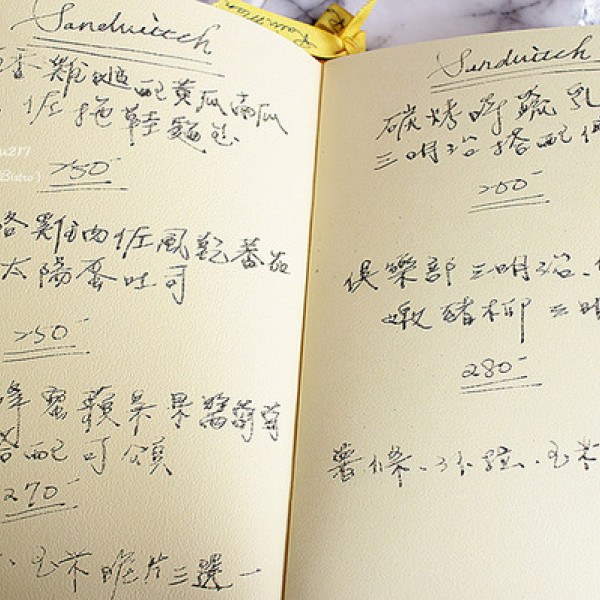 Sandwitch
香雞 配黃瓜南瓜
佐拖鞋麵包
u217
Bistro )
250-
雞肉佐風乾蕃茄
太陽蛋吐司
250-
蜂蜜蘋果果醬葡萄
搭配可頌
270-
、玉米脆片三選一
Sandwitch
碳烤時蔬乳
三明治搭配
200-
俱樂部三明治、
嫩豬柳三明
280-
薯條、沙拉、玉米